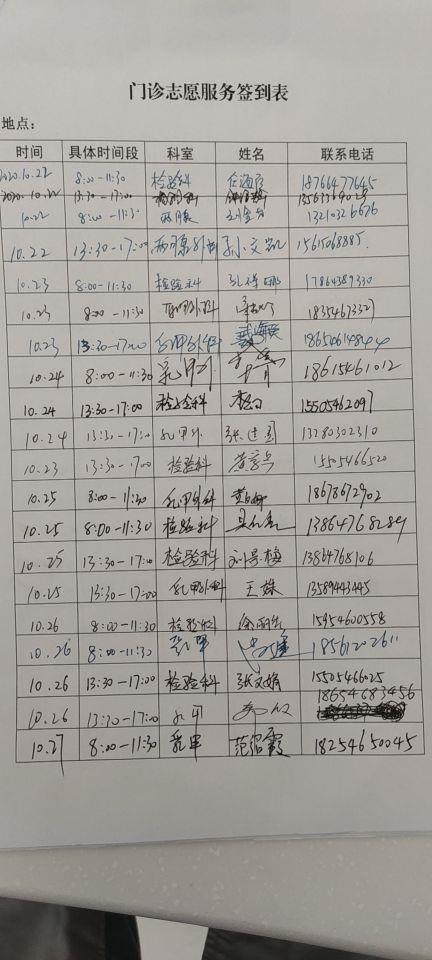 门诊志愿服务签到表
地点：
时间 具体时间段 科室 姓名 联系电话
2020.10.22 8:00-11:30 检验科 18766477645
2020.10.22 13:30-17:00
10.22 8:00-11:30 两腺 13210326676
10.22 13:30-17:00 两腺外科 孙文凯 15615068885.
10.23 8:00-11:30 检验科 17864389330
10.23 8:00-11:30 18354673327
10.23 13:30-17:00 乳甲外科
10.24 8:00-11:30 乳甲外 18615461012
10.24 13:30-17:00 检验科 15505462097
10.24 13:30-17:00 乳甲外 张建国 13280302310
10.23 13:30-17:00 检验科 15505466520
10.25 8:00-11:30 乳甲外科 18678672902
10.25 8:00-11:30 检验科 13864768289
10.25 13:30-17:00 检验科 刘景梅 13864768106
10.25 13:30-17:00 乳甲外科 王姝 13589443445
10.26 8:00-11:30 检验科 15954600558
10.26 8:00-11:30 乳甲 18561202611
10.26 13:30-17:00 检验科 张文娟 15505466025
10.26 13:30-17:00 乳甲 18654683456
10.27 8:00-11:30 乳甲 范绍霞 18254650045